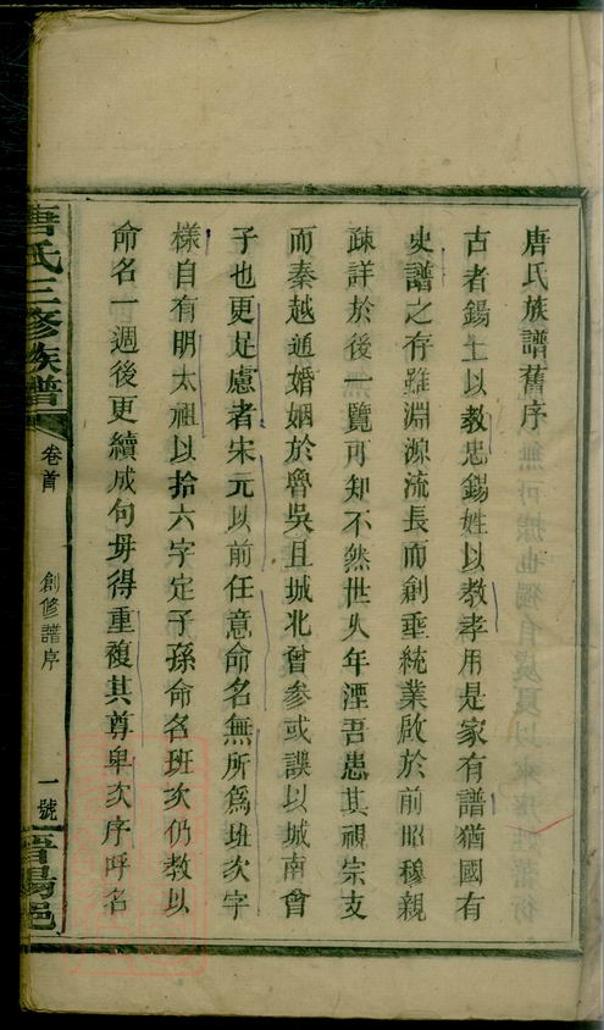 唐氏族譜舊序
古者錫土以教忠錫姓以教孝用是家有譜猶國有
史譜之存雖淵源流長而創垂統業啟於前昭穆親
疎詳於後一覽可知不然世乆年湮吾患其視宗支
而秦越通婚姻於魯吳且城北曾參或誤以城南曾
子也更足慮者宋元以前任意命名無所爲班次字
樣自有明太祖以拾六字定子孫命名班次仍教以
命名一週後更續成句毋得重複其尊卑次序呼名
唐氏三修族譜
卷首
創修譜序
一號
晋陽邑